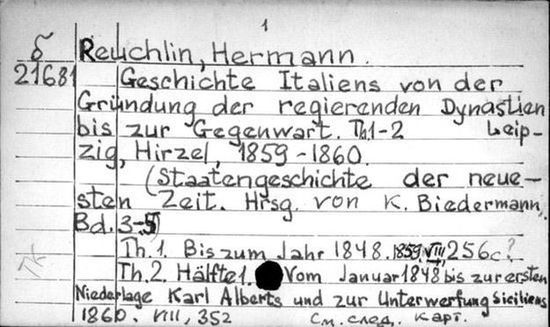 1
б
21681
Reuchlin, Hermann.
Geschichte Italiens von der
Gründung der regierenden Dynastien
bis zur Gegenwart. Th.1-2 Leip-
zig, Hirzel, 1859-1860.
(Staatengeschichte der neue-
sten Zeit. Hrsg. von K. Biedermann,
Bd. 3-
Th. 1. Bis zum Jahr 1848. 1859. VIII, 256c.?
Th. 2. Hälfte 1. Vom Januar 1848 bis zur ersten
Niederlage Karl Alberts und zur Unterwerfung Siciliens
1860. VIII, 352
См. след. карт.